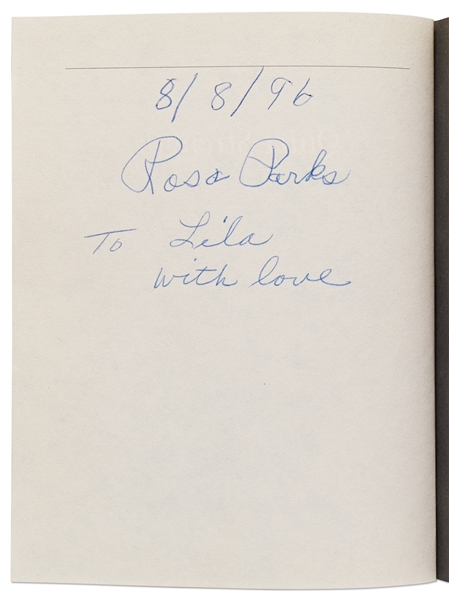 8/8/96
Rosa Parks
To Lila
with love